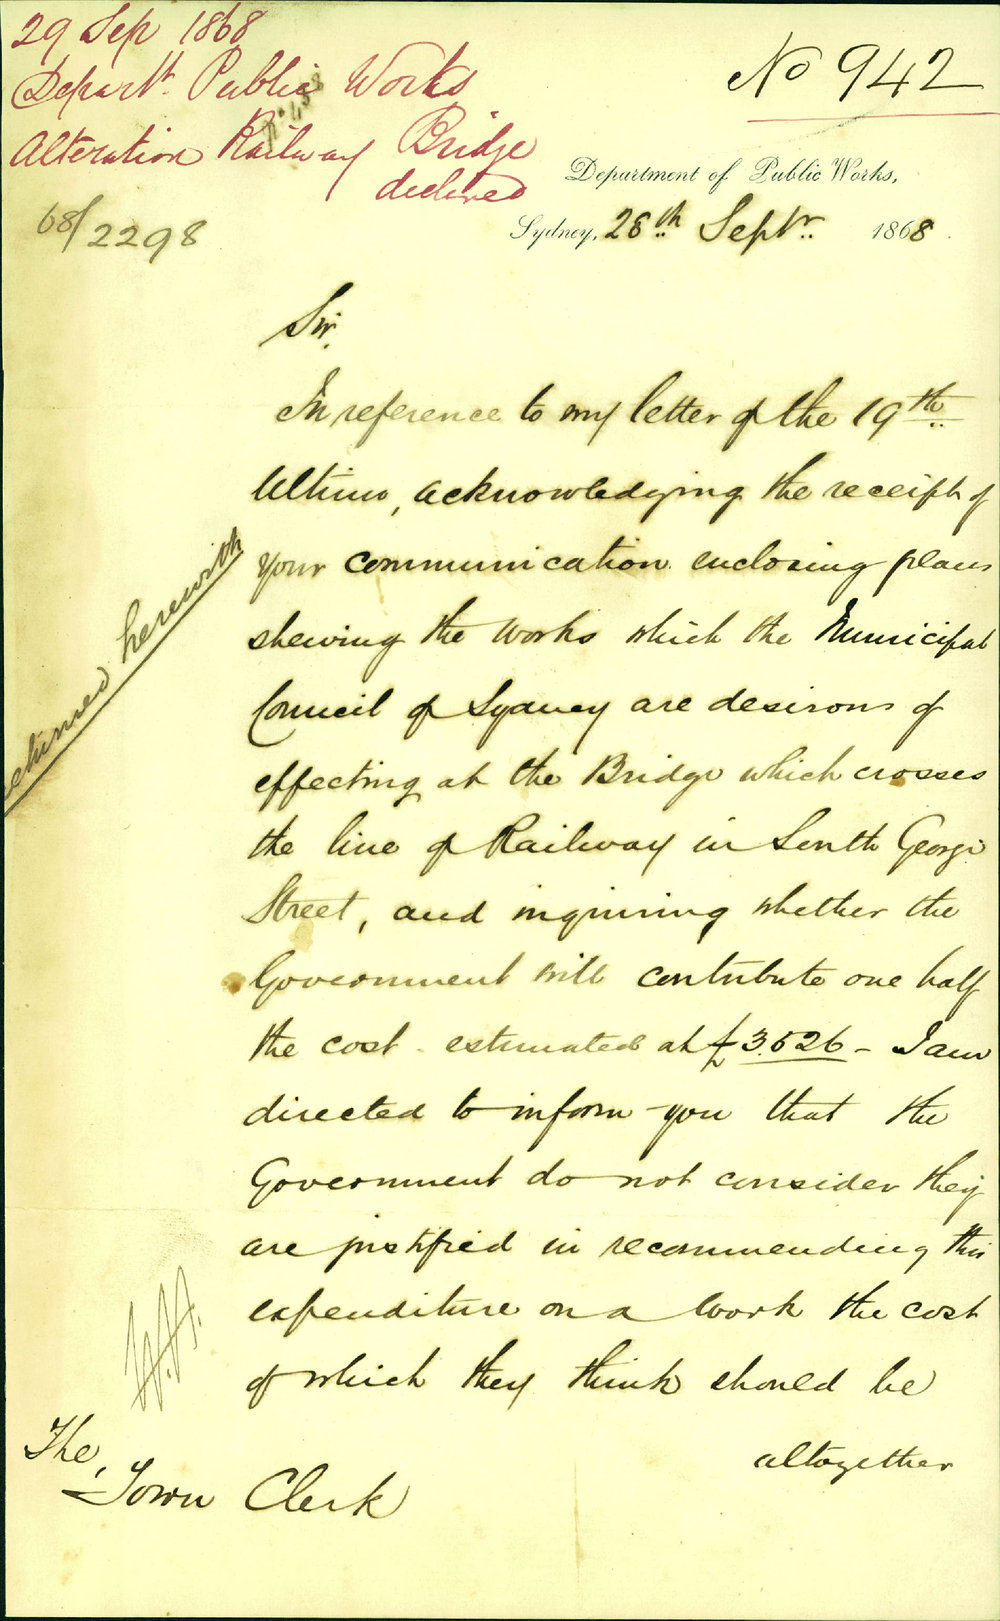 29 Sep 1868
Depart.t Public Works
Alteration Railway Bridge
declined
68/2298
No 942
Department of Public Works,
Sydney, 26th Septr. 1868.
Sir,
In reference to my letter of the 19th
Ultimo, acknowledging the receipt of
your communication enclosing plans
shewing the works which the Municipal
Council of Sydney are desirous of
effecting at the Bridge which crosses
the line of Railway in South George
Street, and inquiring whether the
Government will contribute one half
the cost estimated at £3.526 - I am
directed to inform you that the
Government do not consider they
are justified in recommending this
expenditure on a work the cost
of which they think should be
altogether
returned herewith
The,
Town Clerk